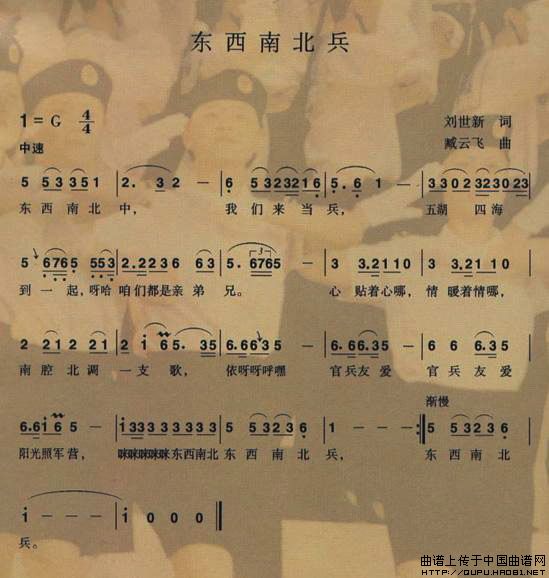 东西南北兵
1=G 4/4
刘世新 词
中速
臧云飞 曲
5 5 3 3 5 1 | 2. 3 2 — | 6 5 3 2 3 2 1 6 | 5. 6 1 — | 3 3 0 2 3 2 3 0 2 3 |
东西南北中， 我们来当兵， 五湖 四海
5 6 7 6 5 5 5 3 | 2. 2 2 3 6 6 | 5. 6 7 6 5 — | 3 3. 2 1 1 0 | 3 3. 2 1 1 0 |
到一起，呀哈 咱们都是亲 弟 兄。 心 贴着心哪， 情 暖着情哪，
2 2 1 2 2 1 | 2 i 6 5. 3 5 | 6. 6 6 3 5 — | 6. 6 6. 3 5 | 6 6 6. 3 5 |
南腔北调 一支歌， 依呀呀呼嘿 官兵友爱 官兵友爱
渐慢
6. 6 i 6 5 — | i 3 3 3 3 3 2 3 3 | 5 5 3 2 3 6 | 1 — — :| 5 5 3 2 3 6 |
阳光照军营， 咪咪咪咪咪东西南北 东西南北 兵， 东西南北
i — — — | i 0 0 0 ‖
兵。
曲谱上传于中国曲谱网
HTTP://QUPU.HAO81.NET